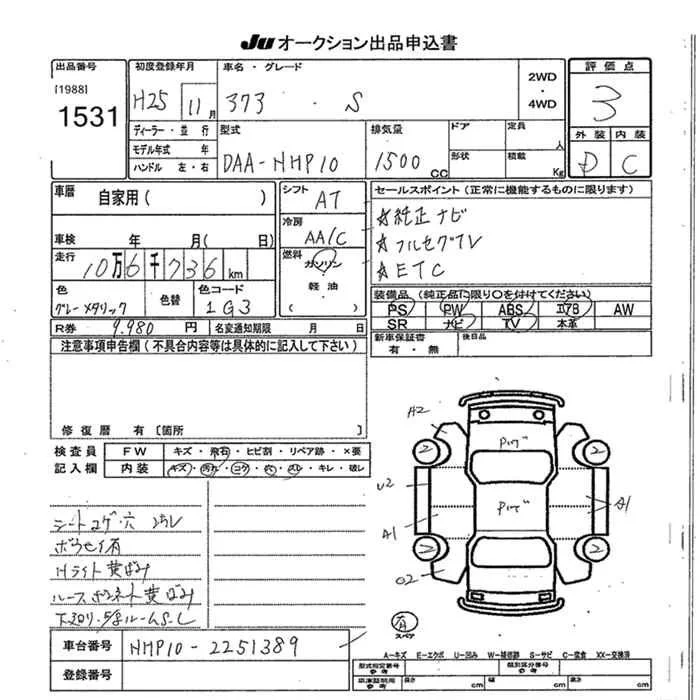 JU オークション出品申込書
出品番号
[1988]
1531
初度登録年月
H25 11月
車名・グレード
373 . S
2WD
・
4WD
評価点
3
外装 内装
D C
ディーラー・並行
モデル年式 年
ハンドル 左・右
型式
DAA-NHP10
排気量
1500 CC
ドア
形状
定員 人
積載 Kg
車暦
自家用( )
シフト
AT
セールスポイント(正常に機能するものに限ります)
☆純正ナビ
☆フルセグTV
☆ETC
車検 年 月( 日)
冷房
AA/C
走行
10万6千736km
燃料
ガソリン
・
軽油
・
( )
色
グレーメタリック
色替
色コード
1G3
装備品(純正品に限り〇を付けてください)
PS PW ABS エアB AW
SR ナビ TV 本革
R券 9.980 円
名変通知期限 月 日
新車保証書
有・無
後日品
注意事項申告欄(不具合内容等は具体的に記入して下さい)
修復歴 有〔箇所 〕
検査員
記入欄
FW キズ・飛石・ヒビ割・リペア跡・×要
内装 キズ・汚れ・コゲ・穴・スレ・キレ・破レ
シートコゲ・穴
ボラセイ有
Hライト黄ばみ
A2
2
2
U2
A1
A1
2
2
02
有
スペア
車台番号 NHP10-2251389
登録番号
A－キズ E－エクボ U－凹み W－補修跡 S－サビ C－腐食 XX－交換済
型式指定番号
参考
類別区分番号
参考
車庫証明用
参考
長さ cm
幅 cm
高さ cm